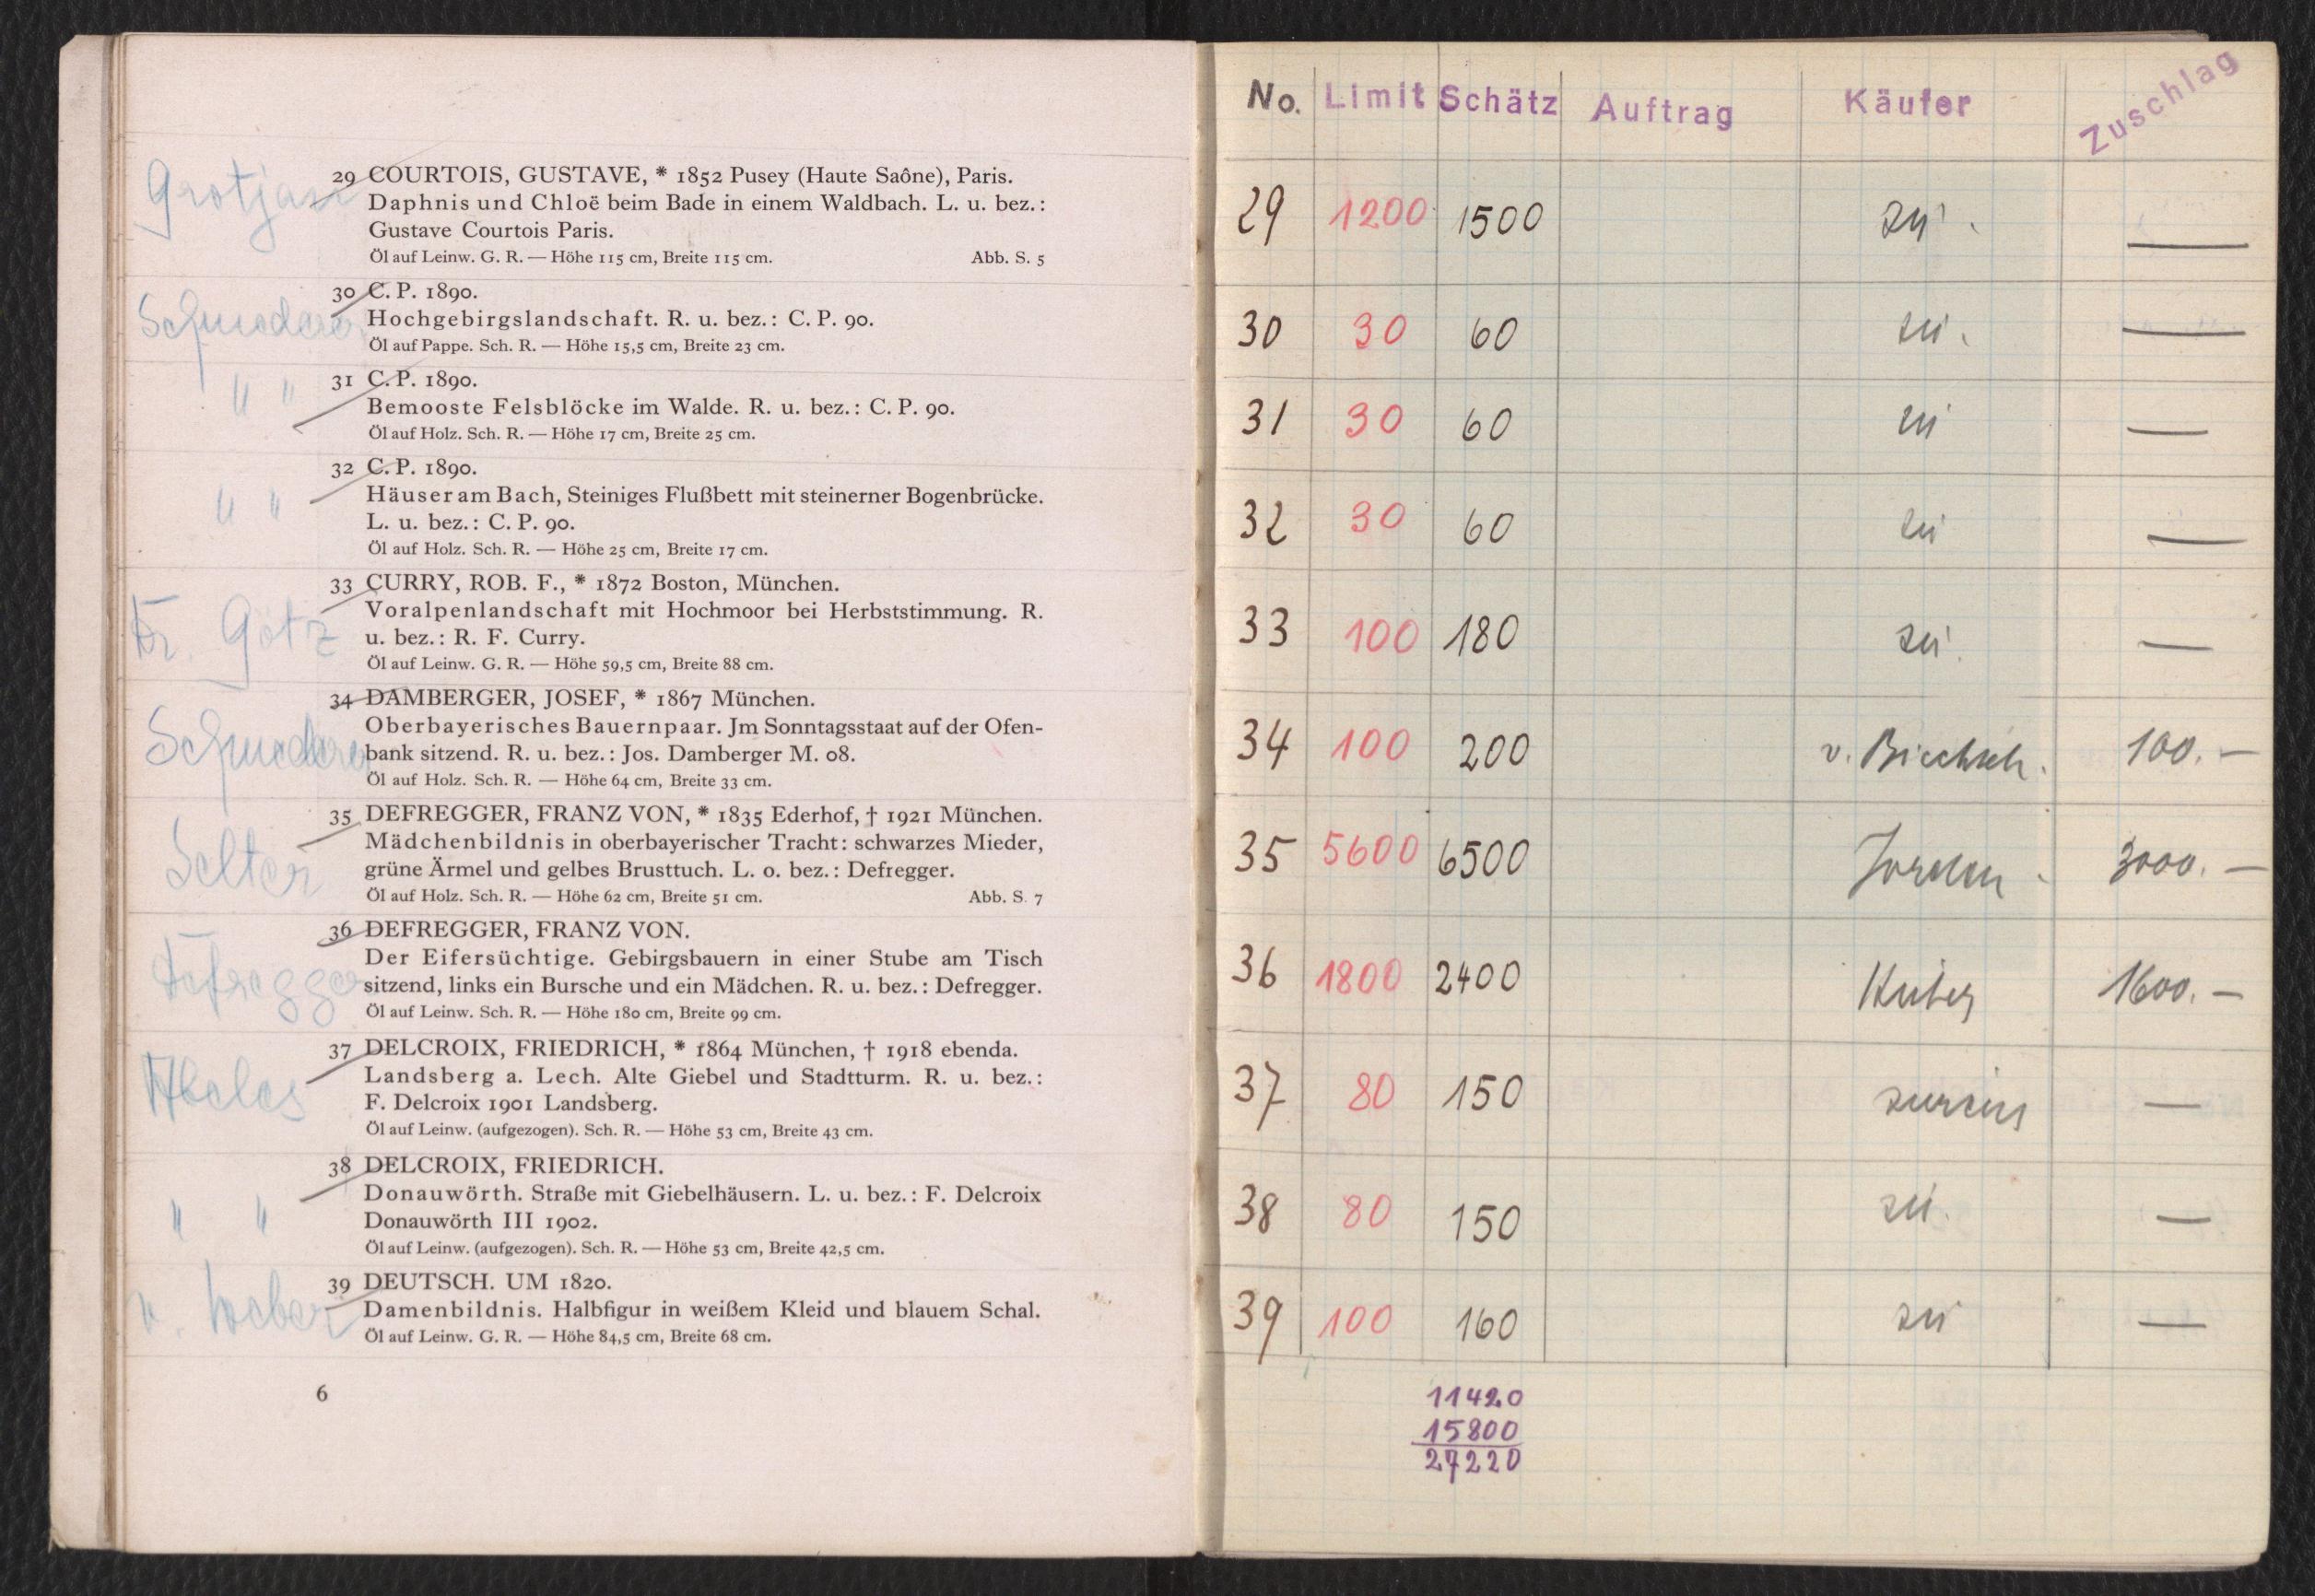 Grotjan
29 COURTOIS, GUSTAVE, * 1852 Pusey (Haute Saône), Paris.
Daphnis und Chloë beim Bade in einem Waldbach. L. u. bez.:
Gustave Courtois Paris.
Öl auf Leinw. G. R. — Höhe 115 cm, Breite 115 cm. Abb. S. 5
Schmederer
30 C. P. 1890.
Hochgebirgslandschaft. R. u. bez.: C. P. 90.
Öl auf Pappe. Sch. R. — Höhe 15,5 cm, Breite 23 cm.
" "
31 C. P. 1890.
Bemooste Felsblöcke im Walde. R. u. bez.: C. P. 90.
Öl auf Holz. Sch. R. — Höhe 17 cm, Breite 25 cm.
" "
32 C. P. 1890.
Häuser am Bach, Steiniges Flußbett mit steinerner Bogenbrücke.
L. u. bez.: C. P. 90.
Öl auf Holz. Sch. R. — Höhe 25 cm, Breite 17 cm.
33 CURRY, ROB. F., * 1872 Boston, München.
Voralpenlandschaft mit Hochmoor bei Herbststimmung. R.
Götz
u. bez.: R. F. Curry.
Öl auf Leinw. G. R. — Höhe 59,5 cm, Breite 88 cm.
34 DAMBERGER, JOSEF, * 1867 München.
Oberbayerisches Bauernpaar. Jm Sonntagsstaat auf der Ofen-
Schmederer
bank sitzend. R. u. bez.: Jos. Damberger M. 08.
Öl auf Holz. Sch. R. — Höhe 64 cm, Breite 33 cm.
35 DEFREGGER, FRANZ VON, * 1835 Ederhof, † 1921 München.
Mädchenbildnis in oberbayerischer Tracht: schwarzes Mieder,
Selter
grüne Ärmel und gelbes Brusttuch. L. o. bez.: Defregger.
Öl auf Holz. Sch. R. — Höhe 62 cm, Breite 51 cm. Abb. S. 7
36 DEFREGGER, FRANZ VON.
Der Eifersüchtige. Gebirgsbauern in einer Stube am Tisch
Defregger
sitzend, links ein Bursche und ein Mädchen. R. u. bez.: Defregger.
Öl auf Leinw. Sch. R. — Höhe 180 cm, Breite 99 cm.
37 DELCROIX, FRIEDRICH, * 1864 München, † 1918 ebenda.
Abeles
Landsberg a. Lech. Alte Giebel und Stadtturm. R. u. bez.:
F. Delcroix 1901 Landsberg.
Öl auf Leinw. (aufgezogen). Sch. R. — Höhe 53 cm, Breite 43 cm.
38 DELCROIX, FRIEDRICH.
Donauwörth. Straße mit Giebelhäusern. L. u. bez.: F. Delcroix
" "
Donauwörth III 1902.
Öl auf Leinw. (aufgezogen). Sch. R. — Höhe 53 cm, Breite 42,5 cm.
39 DEUTSCH. UM 1820.
v. Weber
Damenbildnis. Halbfigur in weißem Kleid und blauem Schal.
Öl auf Leinw. G. R. — Höhe 84,5 cm, Breite 68 cm.
6
No. Limit Schätz Auftrag Käufer Zuschlag
29 1200 1500 zu. —
30 30 60 zu. —
31 30 60 zu —
32 30 60 zu —
33 100 180 zu. —
34 100 200 v. 100.—
35 5600 6500 3000.—
36 1800 2400 Huber 1600.—
37 80 150 zurück —
38 80 150 zu. —
39 100 160 zu —
11420
15800
27220